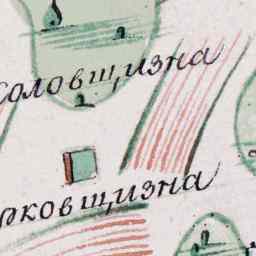 соловщизна
рковщизна